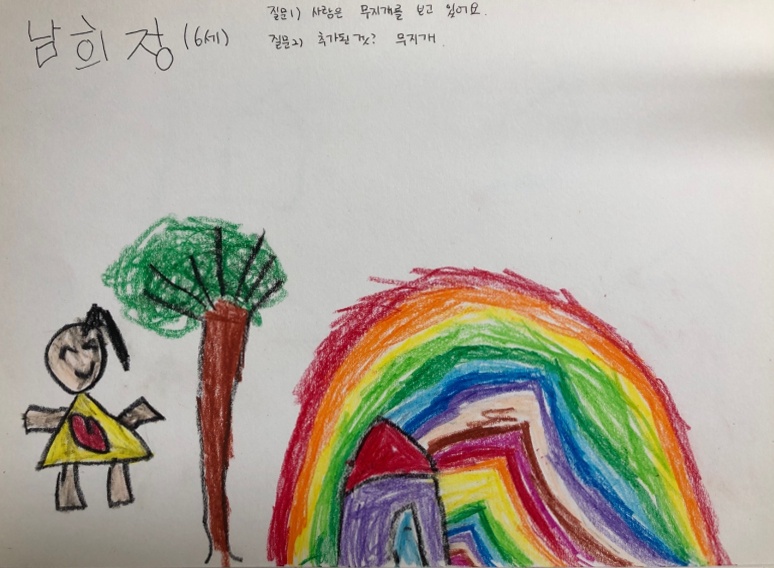 남희장 (6세)
질문1) 사람은 무지개를 보고 있어요.
질문2) 추가된 것? 무지개